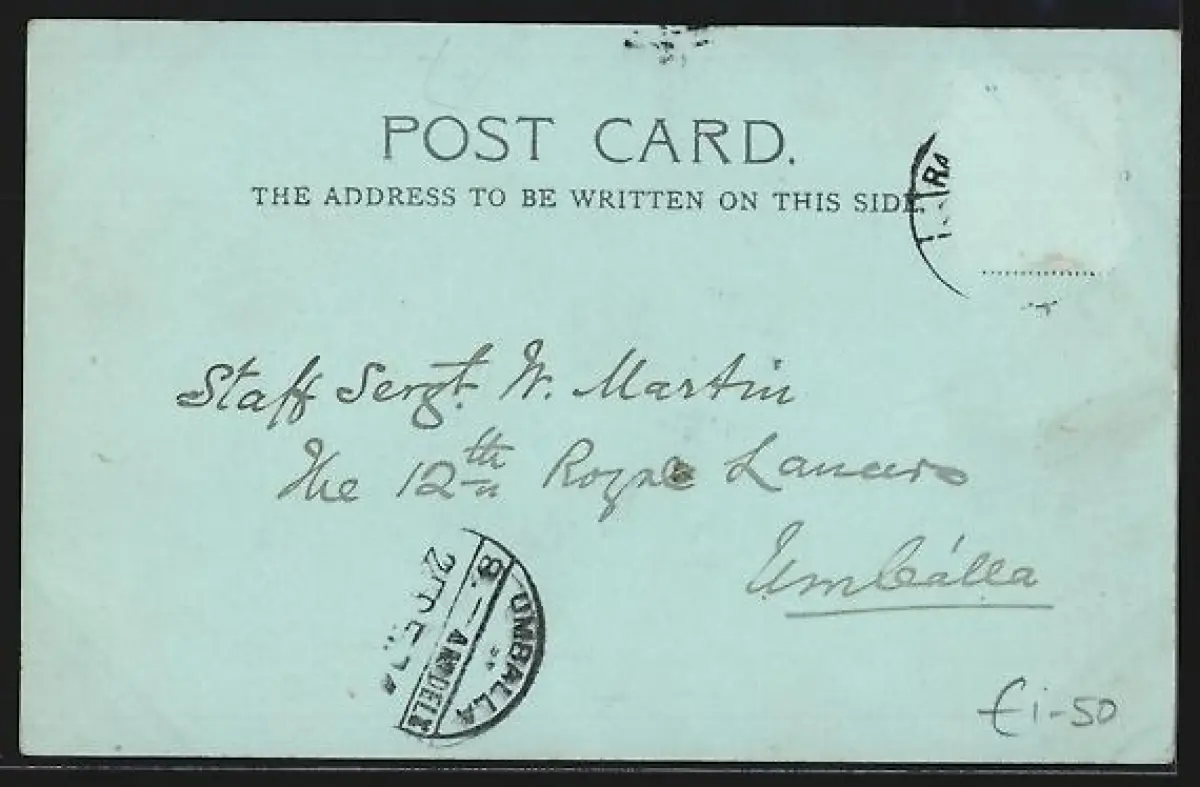 POST CARD.
THE ADDRESS TO BE WRITTEN ON THIS SIDE.
RA
Staff Sergt. W. Martin
The 12th Royal Lancers
Umbálla
UMBALLA
8.
£1-50